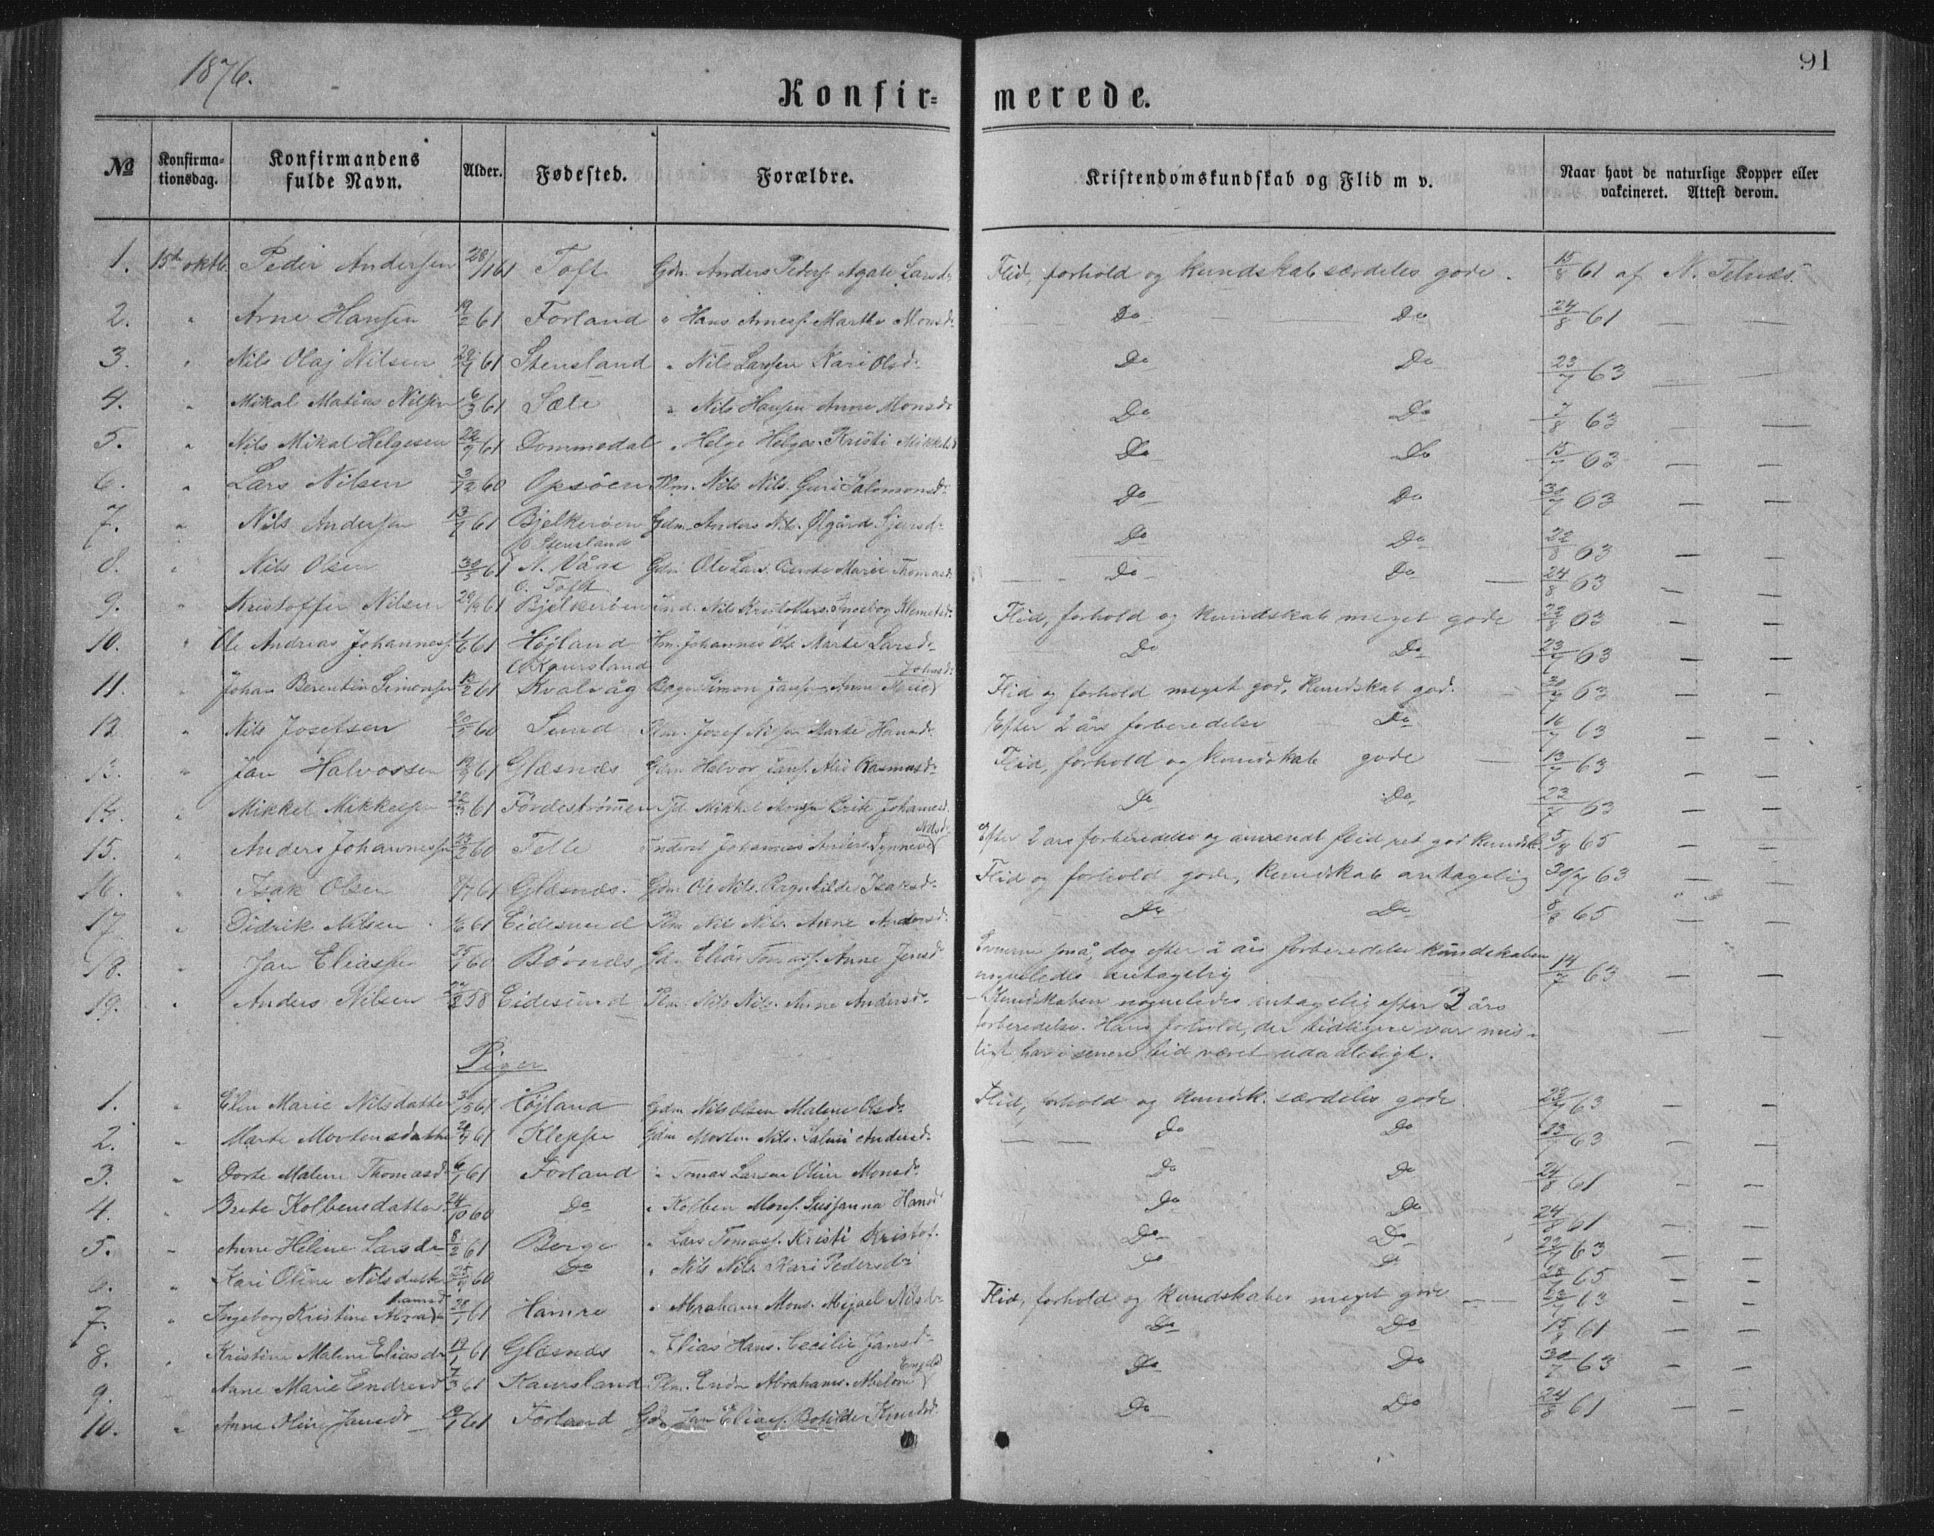 1876.
91
Konfir- merede.
No Konfirmationsdag. Konfirmandens fulde Navn. Alder. Fødested. Forældre. Kristendomskundskab og Flid m v. Naar havt de naturlige Kopper eller vakcineret. Attest derom.
1. 15de oktb. Peder Andersen 28/1 61 Toft Gdm. Anders Peders. Agate Larsd. Flid, forhold og kundskab særdeles gode. 15/8 61 af N. Telnæs.
2. " Arne Hansen 19/2 61 Forland " Hans Arness. Marthe Monsd. Do Do 24/8 61 — —
3. " Nils Olaj Nilsen 61 Stensland " Nils Larsen Kari Olsd. Do Do 23/7 63 — —
4. " Mikal Matias Nilsen 6/3 61 Sæle " Nils Hansen Anne Monsd. Do Do 7/8 63 — —
5. " Nils Mikal Helgesen 61 Dommedal " Helge Helges. Kristi Mikkelsd. Do Do 15/7 63 — —
6. " Lars Nilsen 3/12 60 Opsøen Plm. Nils Nils. Guri Salomonsd. Do Do 30/7 63 — —
7. " Nils Andersen 13/1 61 Bjelkerøen Gdm. Anders Nils. Ølgård Sjursd. Do Do 22/8 63 — —
o Stensland
8. " Nils Olsen 30/3 61 N. Våge Gdm. Ole Lars. Bente Marie Thomasd. Do Do 24/8 63 — —
o. Toft
9. " Kristoffer Nilsen 61 Bjelkerøen Ind. Nils Kristoffers. Ingebog Klemetsd. Flid, forhold og kundskab meget gode 63 — —
10. " Ole Andreas Johanness. 61 Højland Hm. Johannes Ols. Marte Larsd. Do Do 23/7 63 — —
o Kaursland Johnsd.
11. " Johan Berentin Simonsen 61 Kvalvåg Simon Jans. Anne Marie Flid og forhold meget god, kundskab god. 30/7 63 — —
12 Nils Josefsen 60 Sund Plm. Josef Nilsen Marte Hansd. Efter 2 års forberedelse Do 16/7 63 — —
13. " Jan Halvorsen 61 Glæsnæs Gdm Halvor Jans. Rasmusd. Flid, forhold og kundskab gode — 13/7 63 — —
14. " Mikkel Mikkelsen 61 Førdestrømmen Mikkel Monsen Brite Johannesd. Do Do 22/7 63 — —
Nilsd.
15. " Anders Johannessen 60 Telle Inderst Johannes Anders. Synneve Efter 2 års forberedelse og anvendt flid ret god kundsk. 5/8 65 — —
16. " Isak Olsen 61 Glæsnæs. Gdm. Ole Nils. Ragnhilde Isaksd. Flid og forhold gode, kundskab antagelig 30/7 63 — —
17. " Didrik Nilsen 61 Eidesund Plm Nils Nils. Anne Andersd. Do Do 65 — —
18. " Jan Eliassen 60 Bovnæs Gdm Elias Tomass. Anne Jensd. små, dog efter 2 års forberedelse kundskaben
nogenledes antagelig 14/7 63 — —
19. " Anders Nilsen 58 Eidesund Plm. Nils Nils. Anne Andersd. Kundskaben nogenledes antagelig efter 3 års
forberedelse. Hans forhold, der tidligere var mis-
ligt har i senere tid været udadleligt.
Piger
1. " Elen Marie Nilsdatter 61 Højland Gdm Nils Olsen Malene Olsd. Flid, forhold og kundsk. særdeles gode 63 — —
2. " Marte Mortensdatter 61 Kleppe Gdm Morten Nils. Andersd. Do Do 23/7 63 — —
3. " Dorte Malene Thomasd. 61 Forland " Tomas Larsen Oline Monsd. Do Do 24/8 61 — —
4. " Brite Kolbensdatter 60 Do " Kolben Mons. Susjanna Hansd. Do Do 24/8 61 — —
5. " Anne Heline Larsdr 8/2 61 Borge " Lars Tomass. Kristi Kristof. Do Do 63 — —
6. " Kari Oline Nilsdatter 60 Do " Nils Nils. Kari Pedersd. Do Do 65 — —
7. " Ingeborg Kristine 61 Hamre " Abraham Mons. Mijael Nilsd. Flid, forhold og kundskaber meget gode 63 — —
8. " Kristine Malene Eliasdr 19/1 61 Glæsnæs " Elias Hans. Cecilie Jansd. Do Do 61 — —
9. " Anne Marie Endresd 7/3 61 Kaursland Plm. Endre Abrahams. Abelone Do Do 30/7 63 — —
10. " Anne Oline Jansdr 61 Forland Gdm Jan Eliass. Botilde Knudsd. Do Do 24/8 61 — —